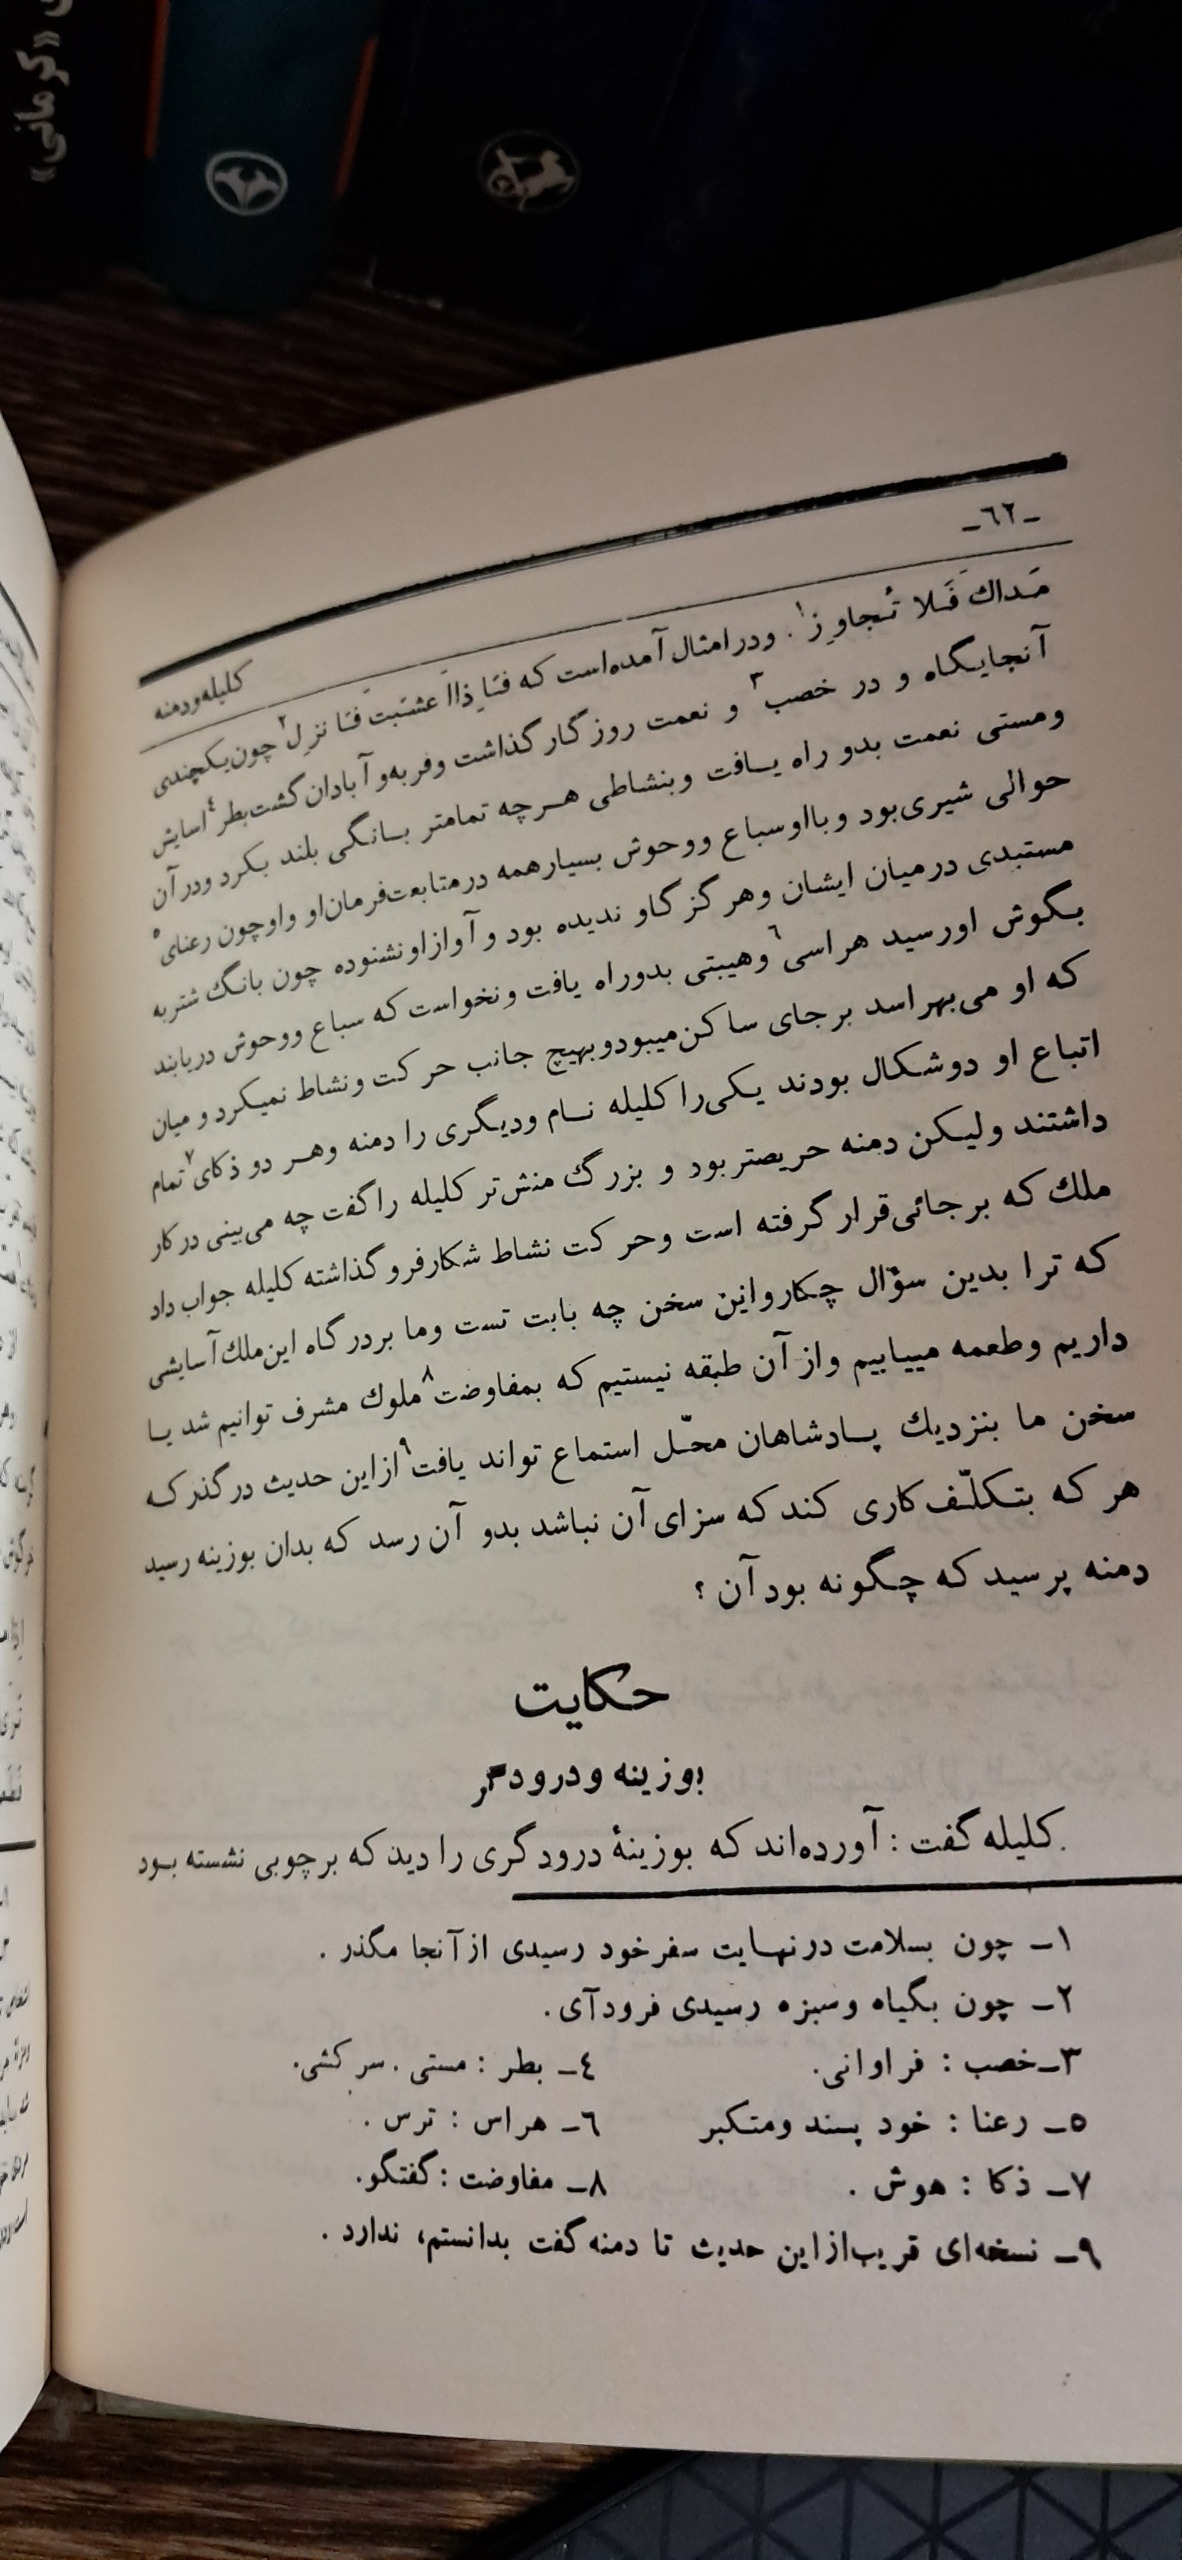 «کرمانی»
-٦٢-
کلیله‌ودمنه
مَداكَ فَلا تُجاوِز۱. ودر امثال آمده‌است که فَاِذا اَعشَبتَ فَانزِل۲ چون‌یکچندی
آنجایگاه و در خصب۳ و نعمت روزگار گذاشت وفربه و آبادان گشت بطر٤ اسایش
ومستی نعمت بدو راه یافت وبنشاطی هرچه تمامتر بانگی بلند بکرد ودر آن
حوالی شیری‌بود وبااوسباع ووحوش بسیار همه درمتابعت‌فرمان‌او واوچون رعنای۵
مستبدی درمیان ایشان وهرگز گاو ندیده بود و آوازاو نشنوده چون بانگ شتربه
بگوش اورسید هراسی٦ وهیبتی بدوراه یافت ونخواست که سباع ووحوش دریابند
که او می‌بهراسد برجای ساکن‌میبودوبهیچ جانب حرکت ونشاط نمیکرد و میان
اتباع او دوشکال بودند یکی‌را کلیله نام ودیگری را دمنه وهر دو ذکای۷ تمام
داشتند ولیکن دمنه حریصتر بود و بزرگ منش‌تر کلیله راگفت چه می‌بینی درکار
ملك که برجائی‌قرار گرفته است وحرکت نشاط شکارفرو گذاشته کلیله جواب داد
که ترا بدین سؤال چکارواین سخن چه بابت تست وما بردرگاه این‌ملك‌آسایشی
داریم وطعمه مییابیم واز آن طبقه نیستیم که بمفاوضت۸ ملوك مشرف توانیم شد یا
سخن ما بنزدیك پادشاهان محلّ استماع تواند یافت۹ ازاین حدیث درگذر که
هر که بتکلّف‌کاری کند که سزای آن نباشد بدو آن رسد که بدان بوزینه رسید
دمنه پرسید که چگونه بود آن ؟
حکایت
بوزینه ودرودگر
کلیله‌گفت : آورده‌اند که بوزینهٔ درودگری را دید که برچوبی نشسته بود
۱ـ چون بسلامت درنهایت سفرخود رسیدی از آنجا مگذر .
۲ـ چون بگیاه وسبزه رسیدی فرود آی.
۳ـ خصب : فراوانی. ٤ـ بطر : مستی . سرکشی.
۵ـ رعنا : خود پسند ومتکبر ٦ـ هراس : ترس .
۷ـ ذکا : هوش . ۸ـ مفاوضت : گفتگو.
۹ـ نسخه‌ای قریب‌ازاین حدیث تا دمنه گفت بدانستم، ندارد .